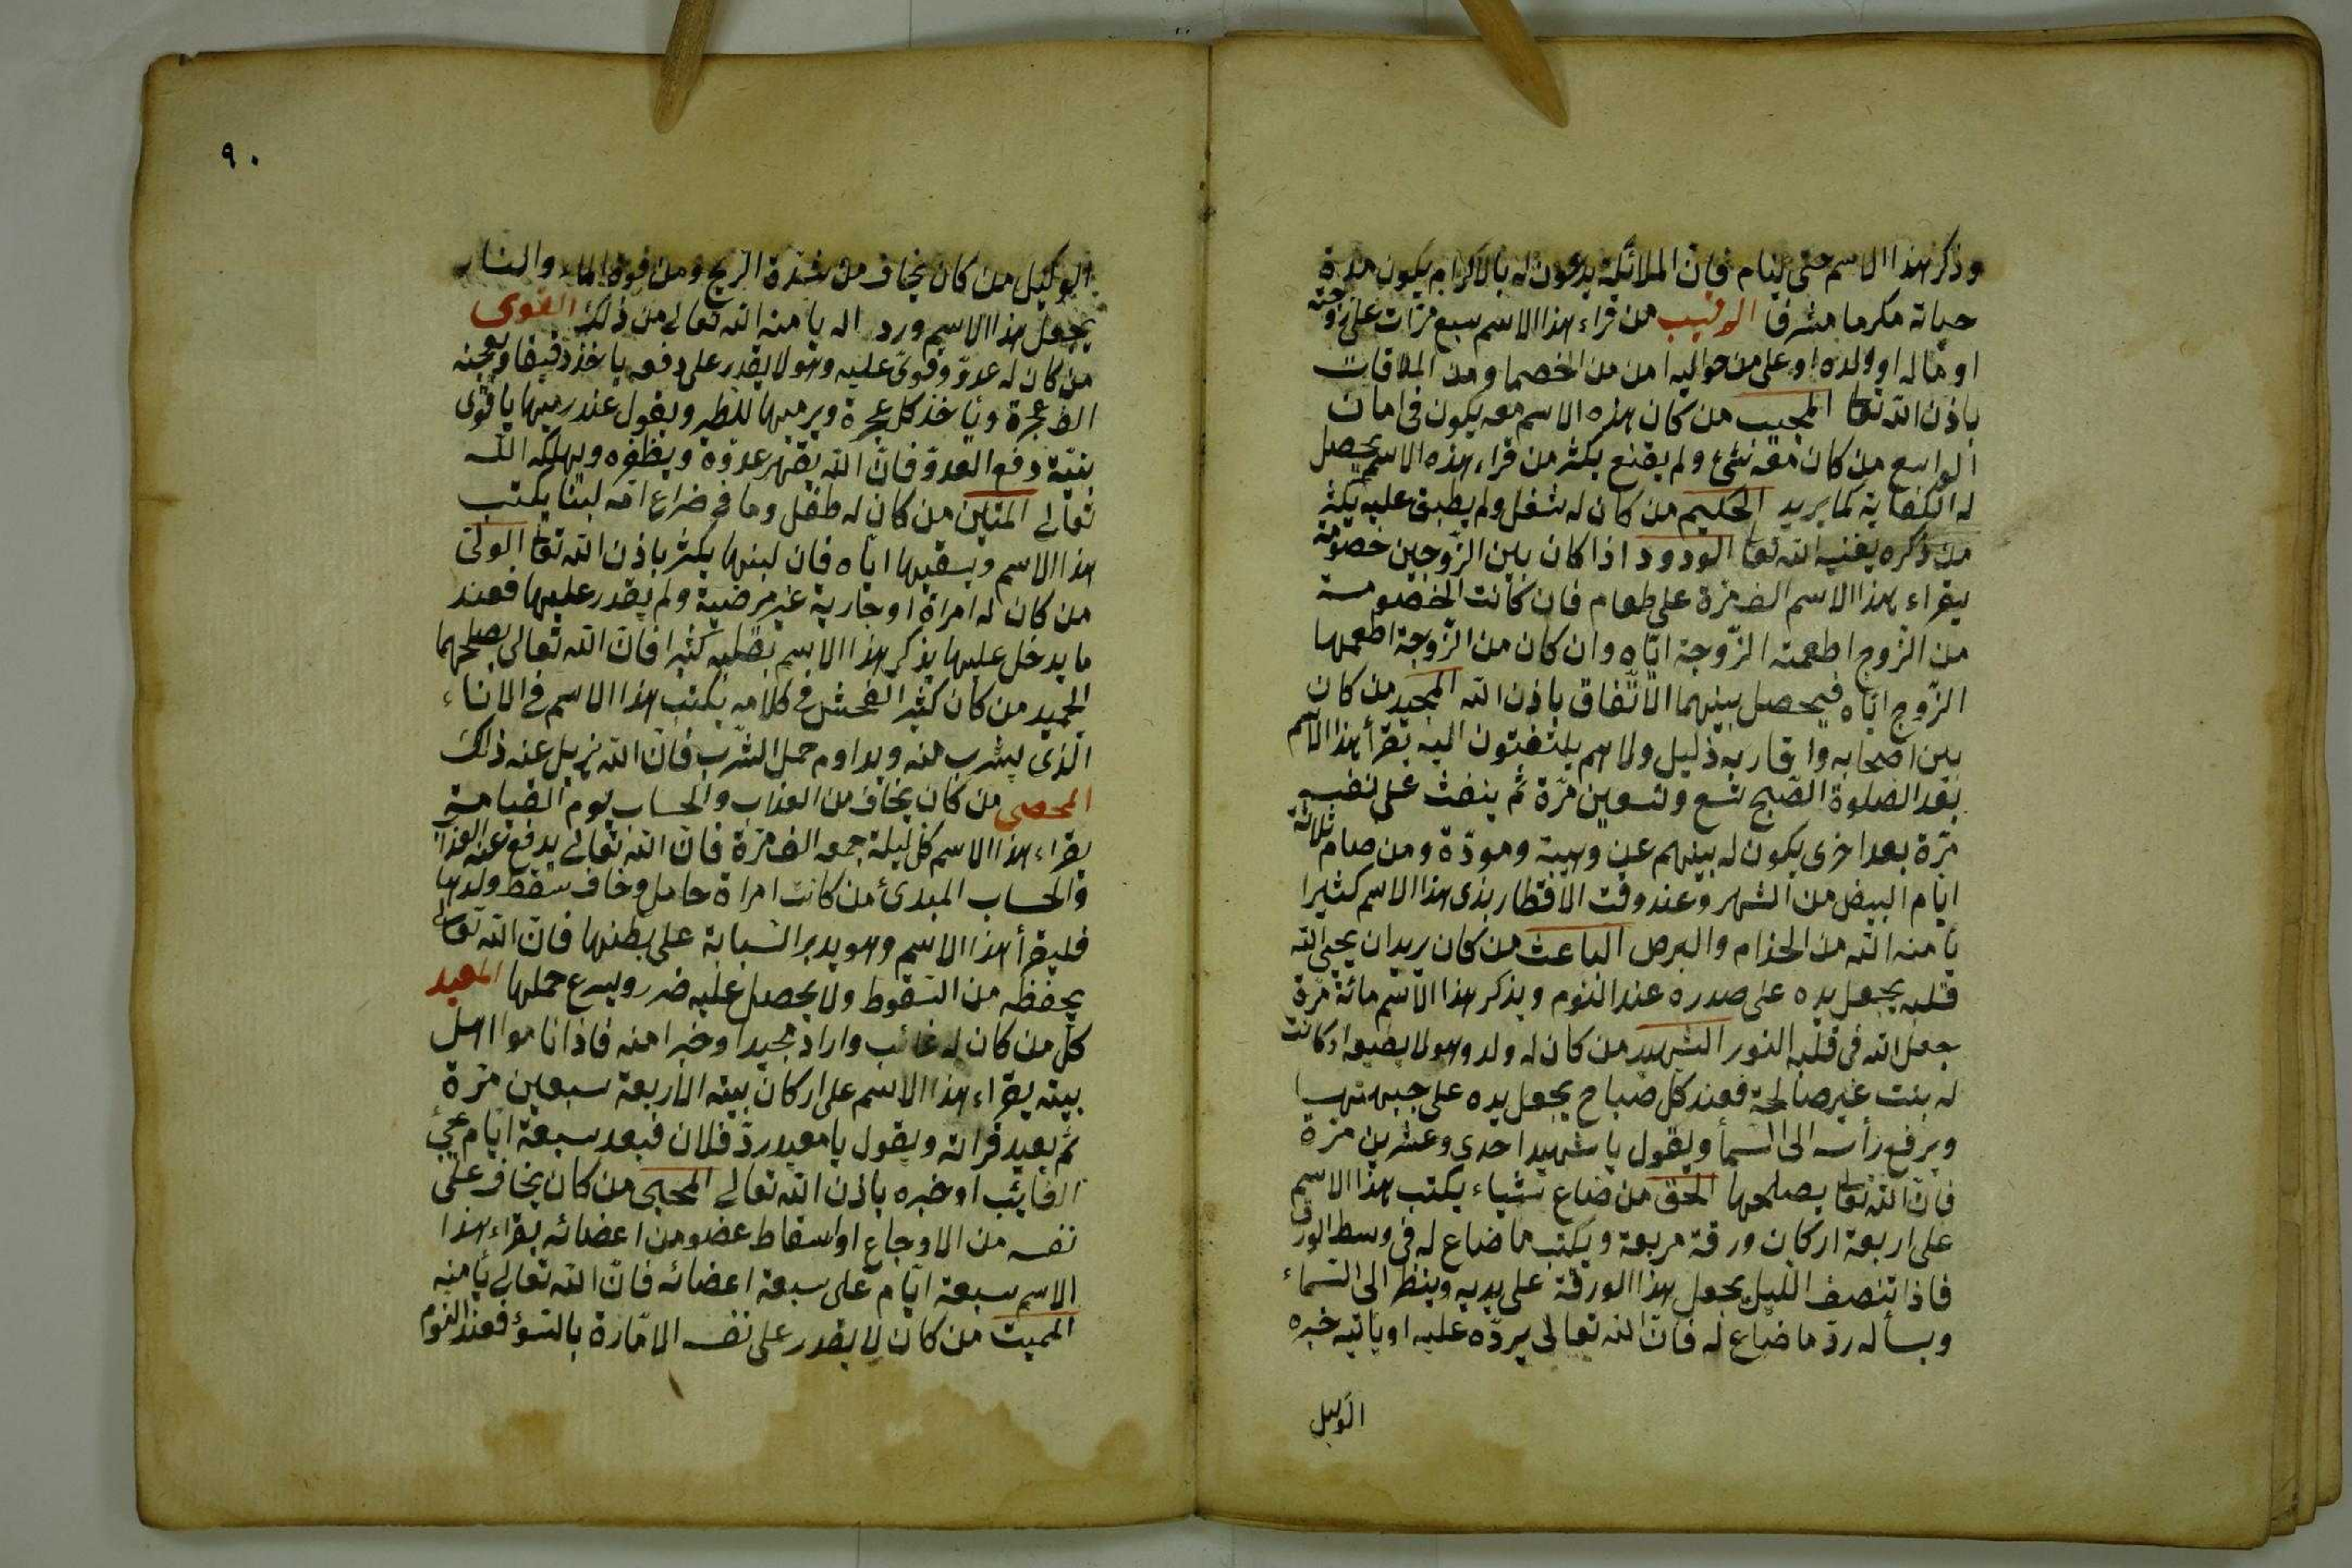 وذكر هذا الاسم حتى ينام فان الملائكة يدعون له بالاكرام يكون مدة
حياته مكرما مشرفا الرقيب من قراء هذا الاسم سبع مرّات على زوجته
او ماله او ولده او على من حواليه امن من الخصما ومن الملاقات
باذن الله تعا المجيب من كان هذه الاسم معه يكون فى امان
الواسع من كان معه شئ ولم يقنع يكثر من قراء هذه الاسم يحصل
له الكفاية كما يريد الحكيم من كان له شغل ولم يطبق عليه يكثر
من ذكره يغنيه الله تعا الودود اذا كان بين الزّوجين خصومة
يقراء هذا الاسم الف مرّة على طعام فان كانت الخصومة
من الزّوج اطعمته الزّوجة ايّاه وان كان من الزّوجة اطعمها
الزّوج ايّاه فيحصل بينهما الاتّفاق باذن الله المجيد من كان
بين اصحابه واقاربه ذليل ولاهم يلتفتون اليه يقرأ هذا الاسم
بعد الصّلوة الصّبح تسع وتسعين مرّة ثم ينفث على نفسه
مرّة بعد اخرى يكون له بينهم عين وهيبة ومودّة ومن صام ثلاثة
ايّام البيض من الشهر وعند وقت الافطار يذى هذا الاسم كثيرا
يأمنه الله من الجذام والبرص الباعث من كان يريد ان يحيى الله
قلبه يجعل يده على صدره عند النّوم ويذكر هذا الاسم مائة مرّة
جعل الله فى قلبه النور الشهيد من كان له ولد وهو لا يضيعه او كانت
له بنت غير صالحة فعند كل صباح يجعل يده على جبهتها
ويرفع رأسه الى السّمأ ويقول يا شهيد احدى وعشرين مرّة
فان الله تعا يصلحها الحق من ضاع شياء يكتب هذا الاسم
على اربعة اركان ورقة مربعة ويكتب ما ضاع له فى وسط الورق
فاذا تنصف الليل يجعل هذا الورقة على يديه وينظر الى السّماء
ويسأله ردّ ما ضاع له فان الله تعالى يردّه عليه او يأتيه خبره
الوكيل
٩٠
الوكيل من كان يخاف من شدة الريح ومن قوة الماء والنار
يجعل هذا الاسم وردا له يامنه الله تعالى من ذلك القوى
من كان له عدوّ وقوىّ عليه وهو لا يقدر على دفعه ياخذ دقيقا ويعجنه
الف عجرة وياخذ كل عجرة ويرميها للطير ويقول عند رميها يا قوى
بنيّة دفع العدوّ فانّ الله يقهر عدوّه ويظفره ويهلكه الله
تعالى المتين من كان له طفل وما فى ضراع امّه لبنا يكتب
هذا الاسم ويسقيها ايّاه فان لبنها يكثر باذن الله تعا الولىّ
من كان له امراة او جارية غير مرضية ولم يقدر عليها فعند
ما يدخل عليها يذكر هذا الاسم بقلبه كثيرا فانّ الله تعالى يصلحهما
الحميد من كان كثير الفحش فى كلامه يكتب هذا الاسم فى الاناء
الّذى يشرب منه ويداوم حمل الشّرب فانّ الله يزيل عنه ذلك
المحصى من كان يخاف من العذاب والحساب يوم القيامة
يقراء هذا الاسم كل ليلة جمعه الف مرّة فانّ الله تعالى يدفع عنه العذاب
والحساب المبدئ من كانت امراة حامل وخاف سقط ولدها
فليقرأ هذا الاسم وهو يدير السّبابة على بطنها فانّ الله تعالى
يحفظه من السّقوط ولا يحصل عليه ضرر ويسرع حملها المعيد
كلّ من كان له غائب واراد مجيدا وخبرا منه فاذا ناموا اهل
بيته يقراء هذا الاسم على اركان بيته الاربعة سبعين مرّة
ثم يعيد قراته ويقول يا معيد ردّ فلان فبعد سبعة ايّام يجئ
الغايب او خبره باذن الله تعالى المحيى من كان يخاف على
نفسه من الاوجاع او اسقاط عضو من اعضائه يقراء هذا
الاسم سبعة ايّام على سبعة اعضائه فانّ الله تعالى يأمنه
المميت من كان لا يقدر على نفسه الامّارة بالسّوء فعند النّوم